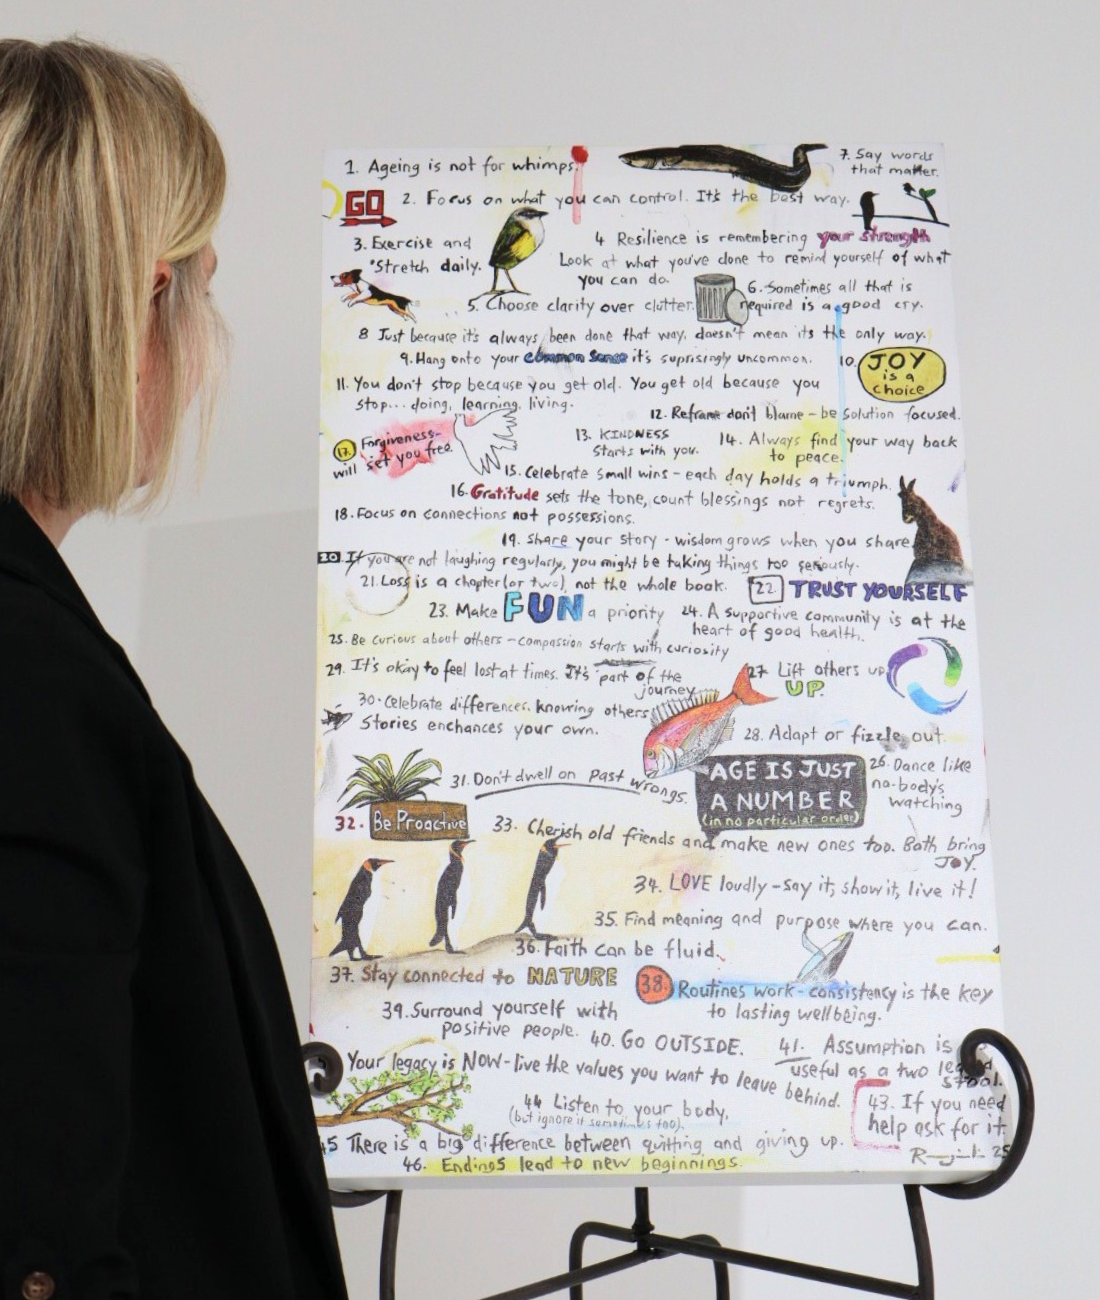 1. Ageing is not for whimps.
7. Say words
that matter.
GO
2. Focus on what you can control. It's the best way.
3. Exercise and
Stretch daily.
4 Resilience is remembering your strength
Look at what you've done to remind yourself of what
you can do.
5. Choose clarity over clutter.
6. Sometimes all that is
required is a good cry.
8 Just because it's always been done that way, doesn't mean its the only way.
9. Hang onto your common sense it's suprisingly uncommon.
10. JOY
is a
choice
11. You don't stop because you get old. You get old because you
stop... doing, learning, living.
12. Reframe don't blame - be solution focused.
17. Forgiveness-
will set you free.
13. KINDNESS
starts with you.
14. Always find your way back
to peace.
15. Celebrate small wins - each day holds a triumph.
16. Gratitude sets the tone, count blessings not regrets.
18. Focus on connections not possessions.
19. Share your story - wisdom grows when you share
20. If you are not laughing regularly, you might be taking things too seriously.
21. Loss is a chapter (or two), not the whole book.
22. TRUST YOURSELF
23. Make FUN a priority
24. A supportive community is at the
heart of good health.
25. Be curious about others - compassion starts with curiosity
29. It's okay to feel lost at times. It's part of the
journey
27 Lift others up
UP.
30. Celebrate differences. knowing others
Stories enchances your own.
28. Adapt or fizzle out.
31. Don't dwell on past wrongs.
AGE IS JUST
A NUMBER
(in no particular order)
26. Dance like
no-body's
watching
32. Be Proactive
33. Cherish old friends and make new ones too. Both bring
JOY.
34. LOVE loudly - say it, show it, live it!
35. Find meaning and purpose where you can.
36. Faith can be fluid.
37. Stay connected to NATURE
38. Routines work - consistency is the key
to lasting wellbeing.
39. Surround yourself with
positive people.
40. GO OUTSIDE.
41. Assumption is
useful as a two legged
stool.
Your legacy is NOW - live the values you want to leave behind.
43. If you need
help ask for it.
44 Listen to your body,
(but ignore it sometimes too).
45 There is a big difference between quitting and giving up.
25
46. Endings lead to new beginnings.